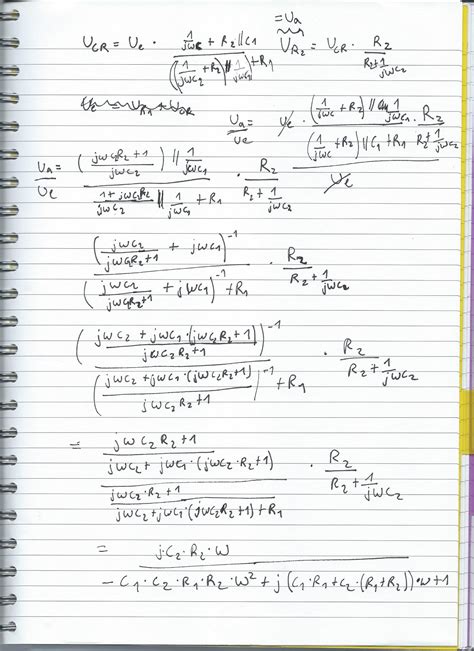 =Ua
UCR = Ue · (1/jωC + R2//C1) / ((1/jωC2 + R2)//1/jωC1 + R1)   UR2 = UCR · R2/(R2 + 1/jωC2)
Ua/Ue = Ue · ((1/jωC + R2)// 1/jωC1 · R2) / ((1/jωC + R2)//C1 + R1   R2 + 1/jωC2) / Ue
Ua/Ue = ((jωC2R2 + 1)/jωC2) // 1/jωC1 / ((1 + jωC2R2)/jωC2 // 1/jωC1 + R1) · R2/(R2 + 1/jωC2)
(jωC2/(jωC2R2+1) + jωC1)^-1 / ((jωC2/(jωC2R2+1) + jωC1)^-1 + R1) · R2/(R2 + 1/jωC2)
((jωC2 + jωC1·(jωC2R2+1))/(jωC2R2+1))^-1 / (((jωC2 + jωC1·(jωC2R2+1))/(jωC2R2+1))^-1 + R1) · R2/(R2 + 1/jωC2)
= (jωC2R2+1)/(jωC2 + jωC1·(jωC2·R2+1)) / ((jωC2·R2+1)/(jωC2+jωC1·(jωC2R2+1) + R1)) · R2/(R2 + 1/jωC2)
= j·C2·R2·ω / (-C1·C2·R1·R2·ω² + j(C1·R1+C2·(R1+R2))·ω+1)